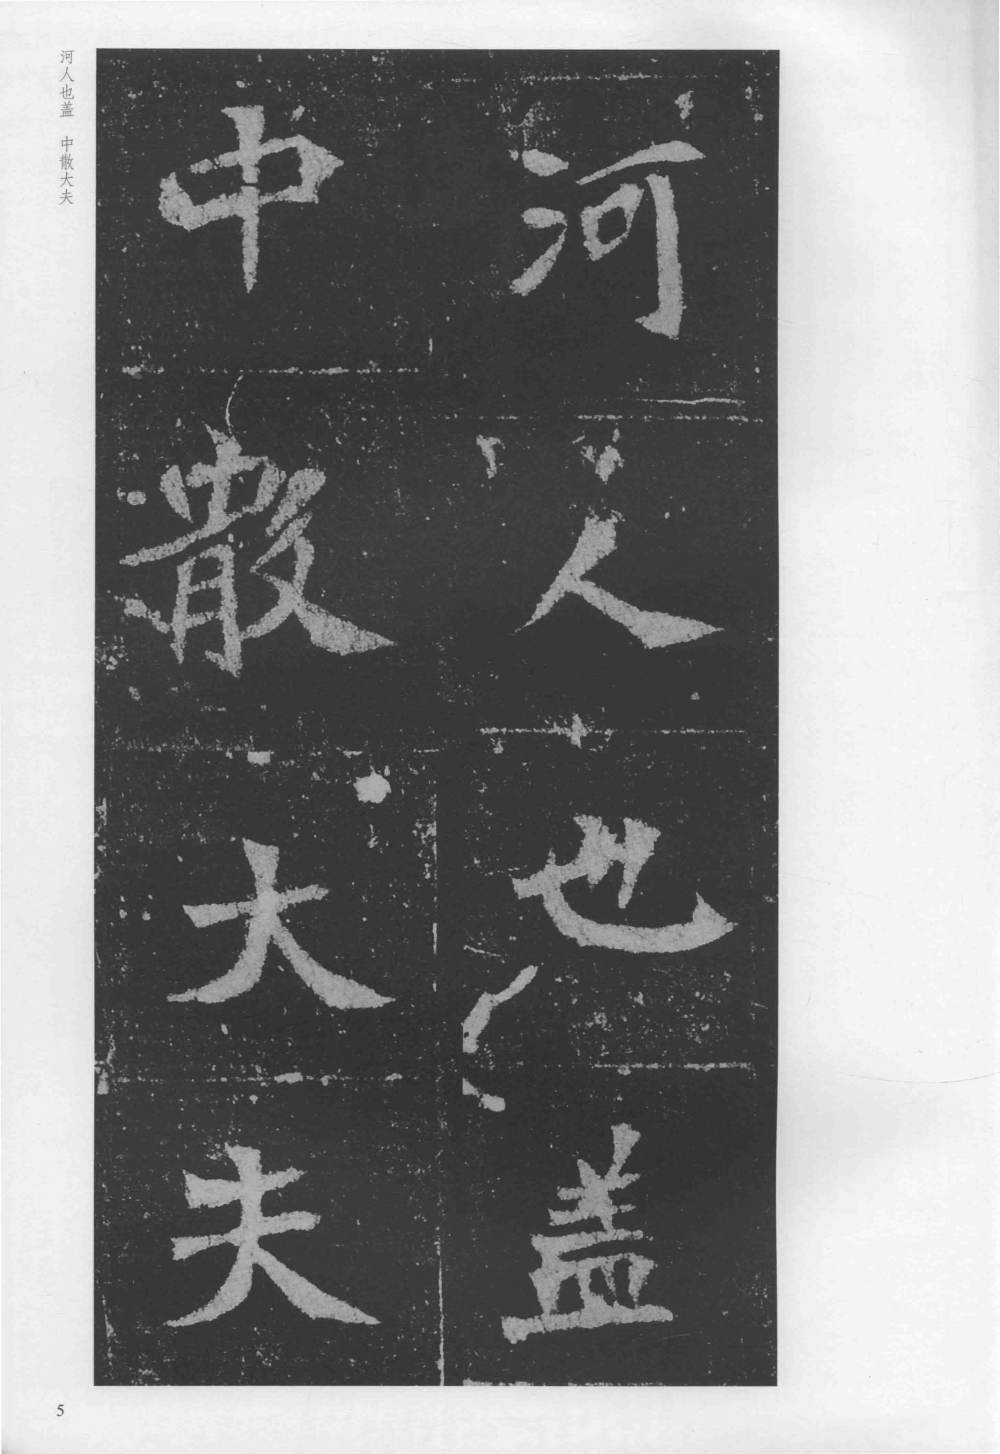 河人也盖
中散大夫
河人也盖 中散大夫
5